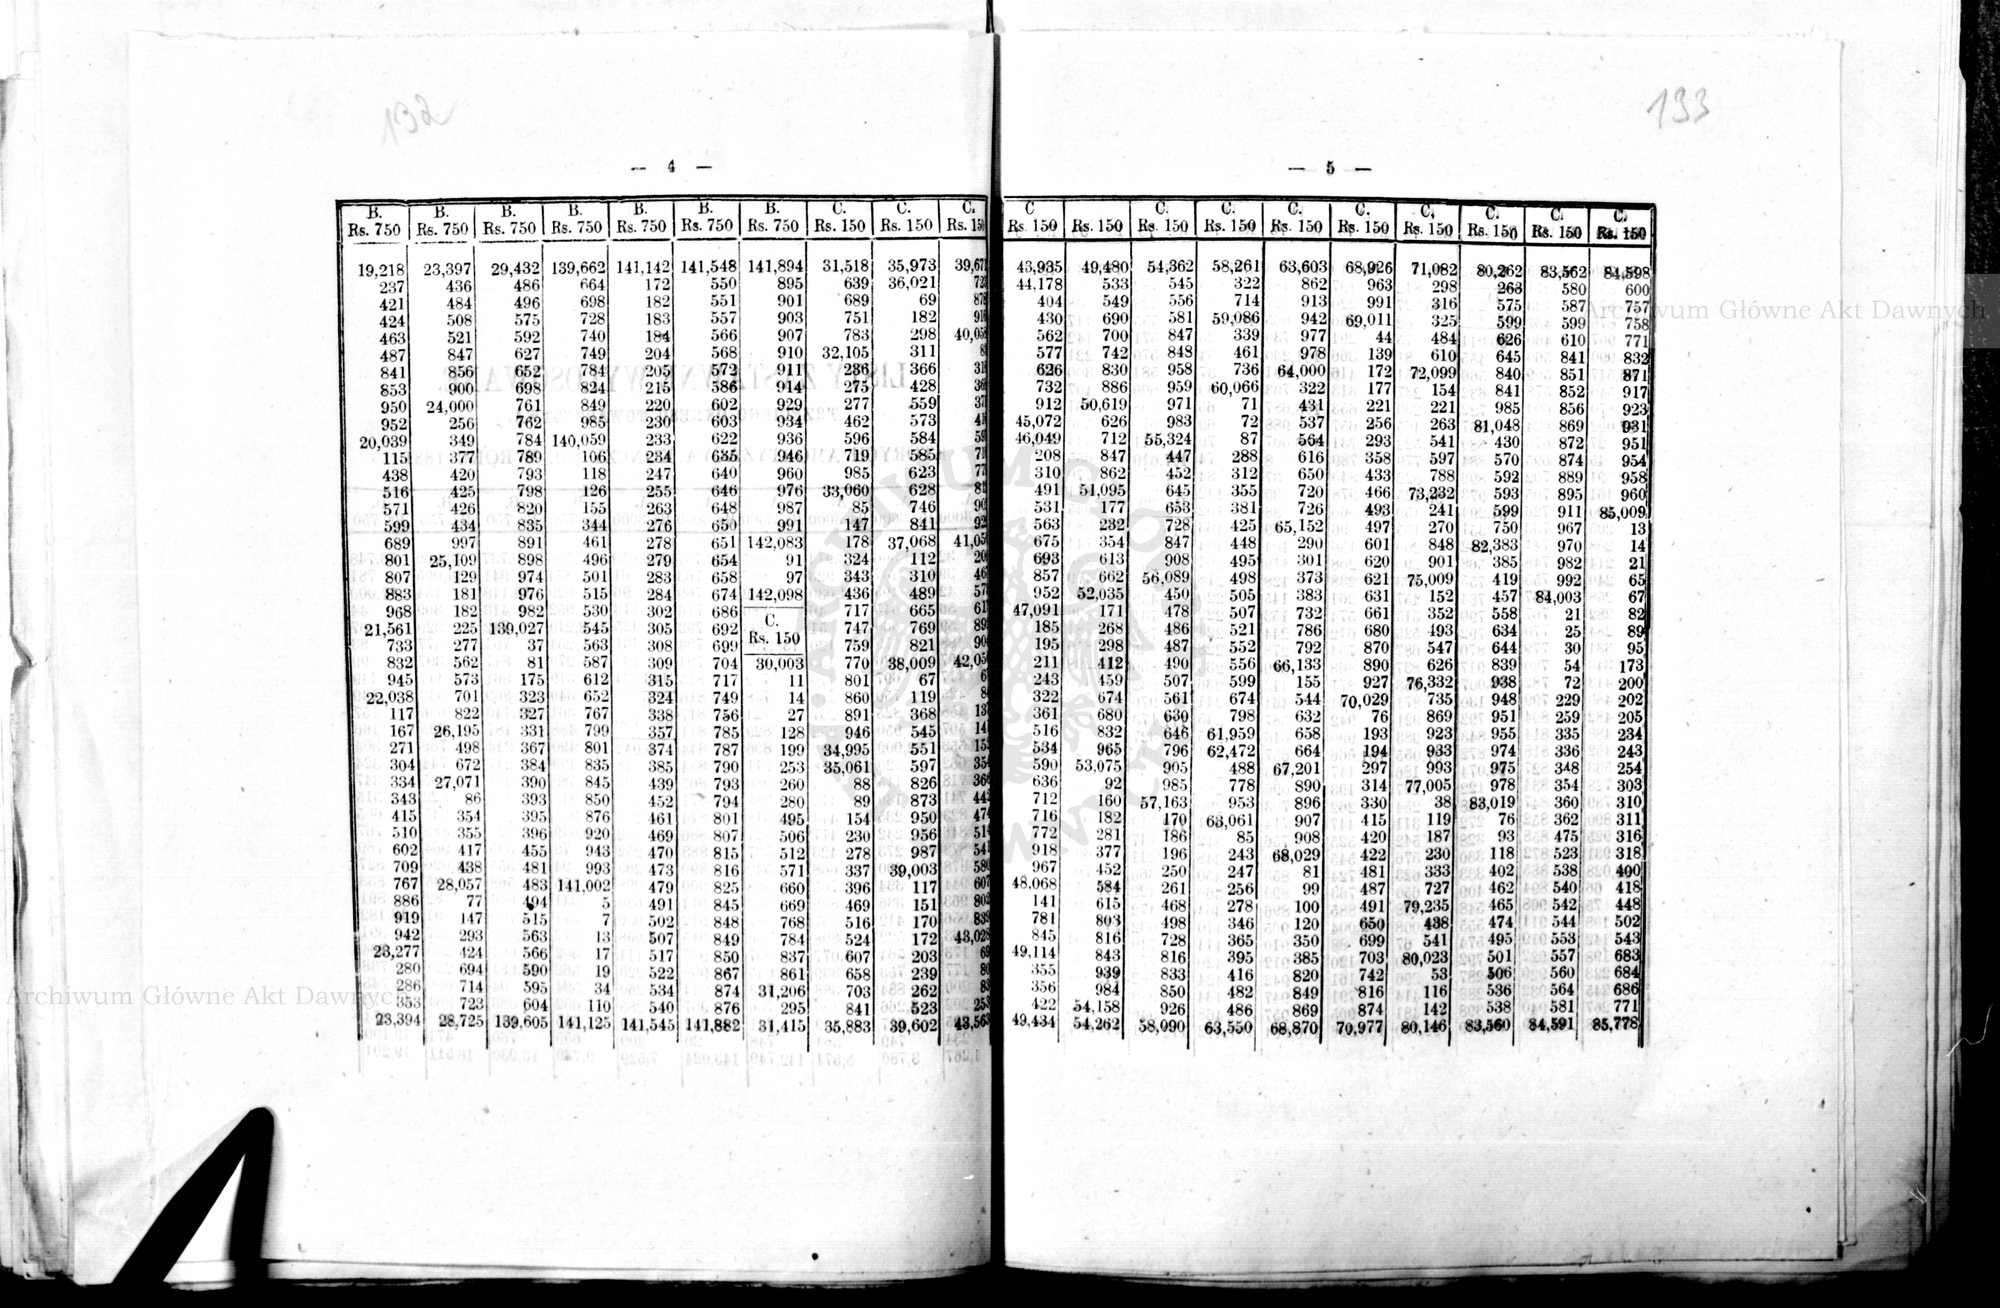 132
— 4 —
B. B. B. B. B. B. B. C. C. C.
Rs. 750 Rs. 750 Rs. 750 Rs. 750 Rs. 750 Rs. 750 Rs. 750 Rs. 150 Rs. 150
19,218 23,397 29,432 139,662 141,142 141,548 141,894 31,518 35,973
237 436 486 664 172 550 895 639 36,021
421 484 496 698 182 551 901 689 69
424 508 575 728 183 557 903 751 182
463 521 592 740 184 566 907 783 298
487 847 627 749 204 568 910 32,105 311
841 856 652 784 205 572 911 236 366
853 900 698 824 215 586 914 275 428
950 24,000 761 849 220 602 929 277 559
952 256 762 985 230 603 934 462 573
20,039 349 784 140,059 233 622 936 596 584
115 377 789 106 234 635 946 719 585
438 420 793 118 247 640 960 985 623
516 425 798 126 255 646 976 33,060 628
571 426 820 155 263 648 987 85 746
599 434 835 344 276 650 991 147 841
689 997 891 461 278 651 142,083 178 37,068
801 25,109 898 496 279 654 91 324 112
807 129 974 501 283 658 97 343 310
883 181 976 515 284 674 142,098 436 489
968 182 982 530 302 686 717 665
21,561 225 139,027 545 305 692 C. 747 769
733 277 37 563 308 699 Rs. 150 759 821
832 562 81 587 309 704 30,003 770 38,009
945 573 175 612 315 717 11 801 67
22,038 701 323 652 324 749 14 860 119
117 822 327 767 338 756 27 891 368
167 26,195 331 799 357 785 128 946 545
271 498 367 801 374 787 199 34,995 551
304 672 384 835 385 790 253 35,061 597
334 27,071 390 845 439 793 260 88 826
343 86 393 850 452 794 280 89 873
415 354 395 876 461 801 495 154 950
510 355 396 920 469 807 506 230 956
602 417 455 943 470 815 512 278 987
709 438 481 993 473 816 571 337 39,003
767 28,057 483 141,002 479 825 660 396 117
886 77 494 5 491 845 669 469 151
919 147 515 7 502 848 768 516 170
942 293 563 13 507 849 784 524 172
23,277 424 566 17 517 850 837 607 203
280 694 590 19 522 867 861 658 239
286 714 595 34 534 874 31,206 703 262
353 723 604 110 540 876 295 841 523
23,394 28,725 139,605 141,125 141,545 141,882 31,415 35,883 39,602
133
— 5 —
C C. C. C. C. C. C. C. C.
Rs. 150 Rs. 150 Rs. 150 Rs. 150 Rs. 150 Rs. 150 Rs. 150 Rs. 150 Rs. 150 Rs. 150
43,935 49,480 54,362 58,261 63,603 68,926 71,082 80,262 83,562 84,598
44,178 533 545 322 862 963 298 263 580 600
404 549 556 714 913 991 316 575 587 757
430 690 581 59,086 942 69,011 325 599 599 758
562 700 847 339 977 44 484 626 610 771
577 742 848 461 978 139 610 645 841 832
626 830 958 736 64,000 172 72,099 840 851 871
732 886 959 60,066 322 177 154 841 852 917
912 50,619 971 71 431 221 221 985 856 923
45,072 626 983 72 537 256 263 81,048 869 931
46,049 712 55,324 87 564 293 541 430 872 951
208 847 447 288 616 358 597 570 874 954
310 862 452 312 650 433 788 592 889 958
491 51,095 645 355 720 466 73,232 593 895 960
531 177 653 381 726 493 241 599 911 85,009
563 232 728 425 65,152 497 270 750 967 13
675 354 847 448 290 601 848 82,383 970 14
693 613 908 495 301 620 901 385 982 21
857 662 56,089 498 373 621 75,009 419 992 65
952 52,035 450 505 383 631 152 457 84,003 67
47,091 171 478 507 732 661 352 558 21 82
185 268 486 521 786 680 493 634 25 89
195 298 487 552 792 870 547 644 30 95
211 412 490 556 66,133 890 626 839 54 173
243 459 507 599 155 927 76,332 938 72 200
322 674 561 674 544 70,029 735 948 229 202
361 680 630 798 632 76 869 951 259 205
516 832 646 61,959 658 193 923 955 335 234
534 965 796 62,472 664 194 933 974 336 243
590 53,075 905 488 67,201 297 993 975 348 254
636 92 985 778 890 314 77,005 978 354 303
712 160 57,163 953 896 330 38 83,019 360 310
716 182 170 63,061 907 415 119 76 362 311
772 281 186 85 908 420 187 93 475 316
918 377 196 243 68,029 422 230 118 523 318
967 452 250 247 81 481 333 402 538 400
48.068 584 261 256 99 487 727 462 540 418
141 615 468 278 100 491 79,235 465 542 448
781 803 498 346 120 650 438 474 544 502
845 816 728 365 350 699 541 495 553 543
49,114 843 816 395 385 703 80,023 501 557 683
355 939 833 416 820 742 53 506 560 684
356 984 850 482 849 816 116 536 564 686
422 54,158 926 486 869 874 142 538 581 771
49,434 54,262 58,090 63,550 68,870 70,977 80,146 83,560 84,591 85,778
Archiwum Główne Akt Dawnych
Archiwum Główne Akt Dawnych